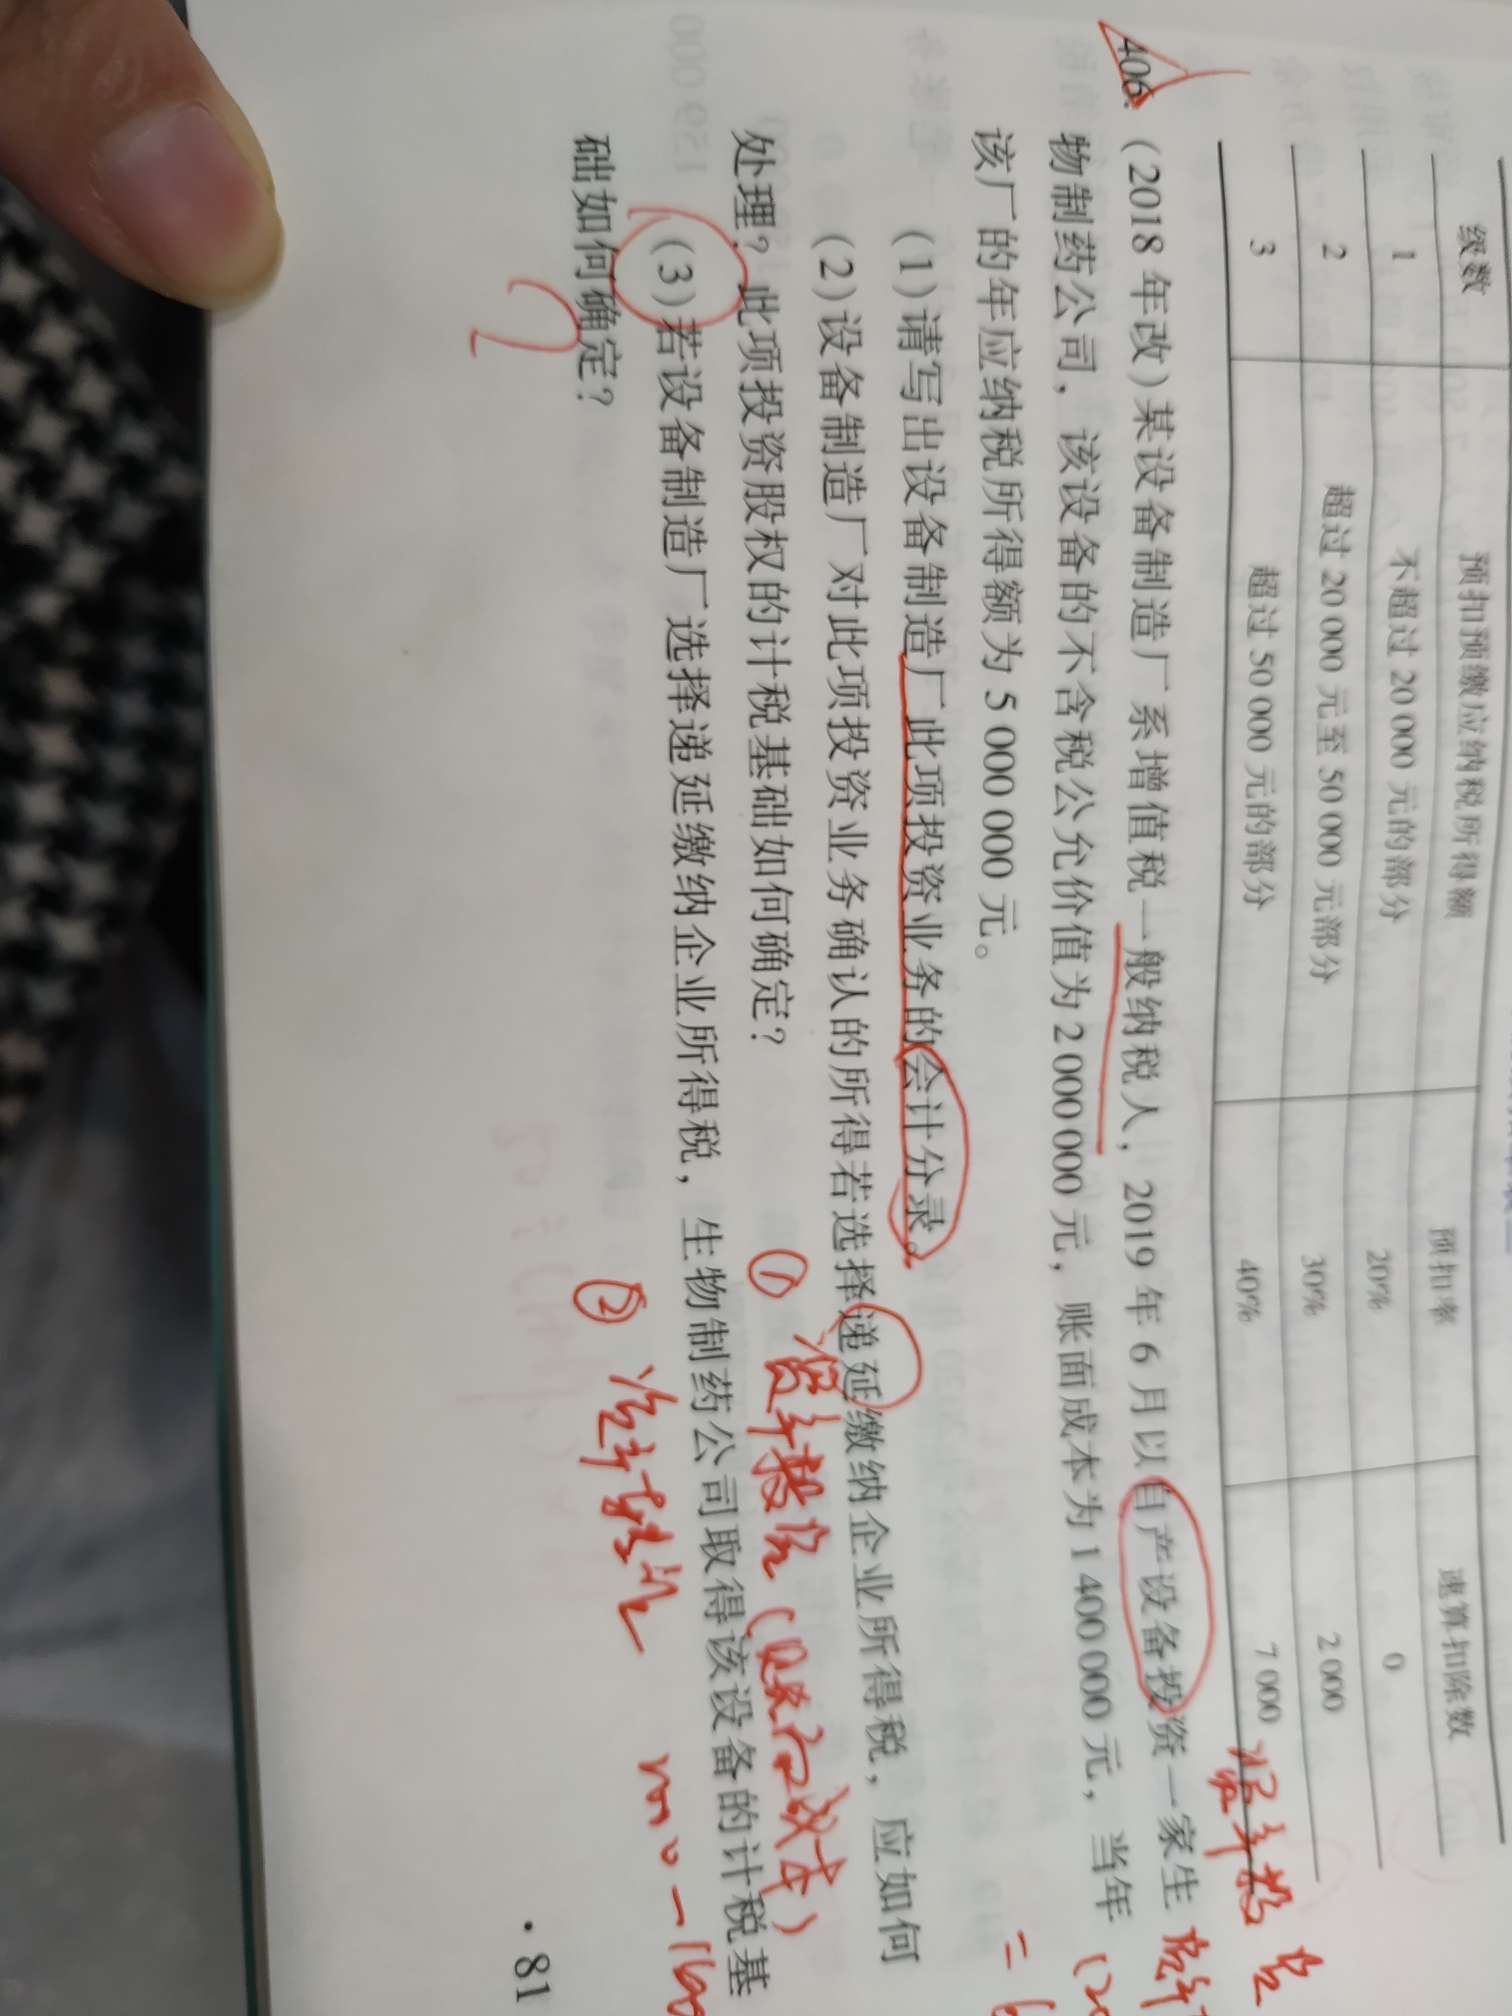 级数 预扣预缴应纳税所得额 预扣率 速算扣除数
1 不超过20 000元的部分 20% 0
2 超过20 000元至50 000元部分 30% 2 000
3 超过50 000元的部分 40% 7 000
406. (2018年改)某设备制造厂系增值税一般纳税人，2019年6月以自产设备投资一家生
物制药公司，该设备的不含税公允价值为2 000 000元，账面成本为1 400 000元，当年
该厂的年应纳税所得额为5 000 000元。
(1)请写出设备制造厂此项投资业务的会计分录。
(2)设备制造厂对此项投资业务确认的所得若选择递延缴纳企业所得税，应如何
处理？此项投资股权的计税基础如何确定？
①
(3)若设备制造厂选择递延缴纳企业所得税，生物制药公司取得该设备的计税基
础如何确定？
②
· 81